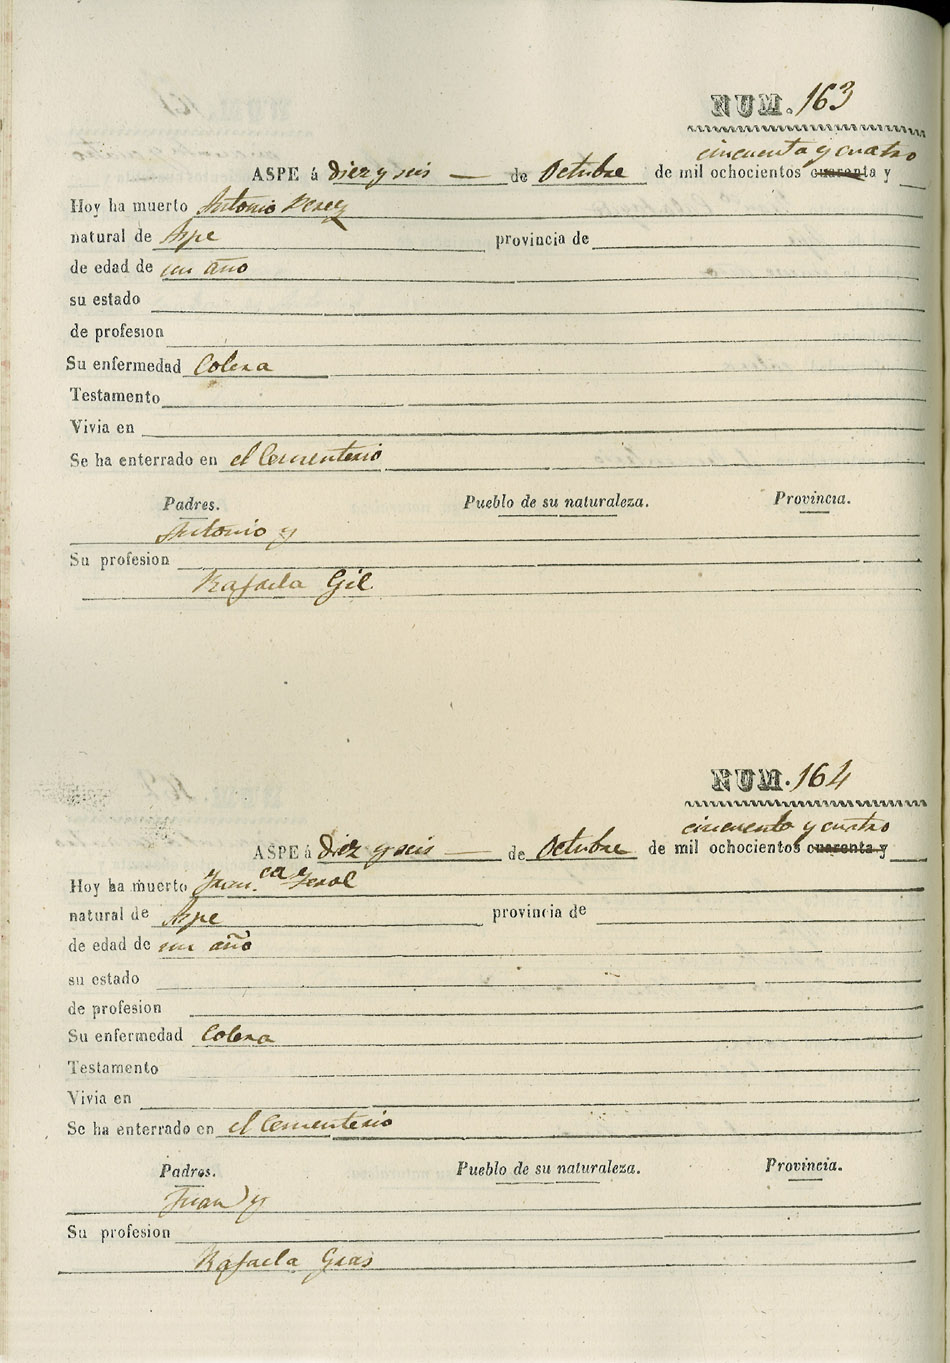 NUM. 163
cincuenta y cuatro
ASPE á Diez y seis — de Octubre de mil ochocientos cuarenta y
Hoy ha muerto Antonio Perez
natural de Aspe provincia de
de edad de un año
su estado
de profesion
Su enfermedad Colera
Testamento
Vivia en
Se ha enterrado en el Cementerio
Padres. Pueblo de su naturaleza. Provincia.
Antonio y
Su profesion
Rafaela Gil
NUM. 164
cincuenta y cuatro
ASPE á Diez y seis — de Octubre de mil ochocientos cuarenta y
Hoy ha muerto Fran.ca
natural de Aspe provincia de
de edad de un año
su estado
de profesion
Su enfermedad Colera
Testamento
Vivia en
Se ha enterrado en el Cementerio
Padres. Pueblo de su naturaleza. Provincia.
Juan y
Su profesion
Rafaela Gras